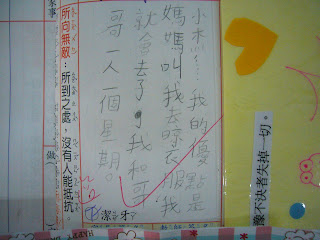 小杰：我的優點是
媽媽叫我去晾衣服我
就會去了，我和哥
哥一人一個星期。
潔牙
所向無敵：所到之處，沒有人能抵抗
做
家事
豫不決者失掉一切。